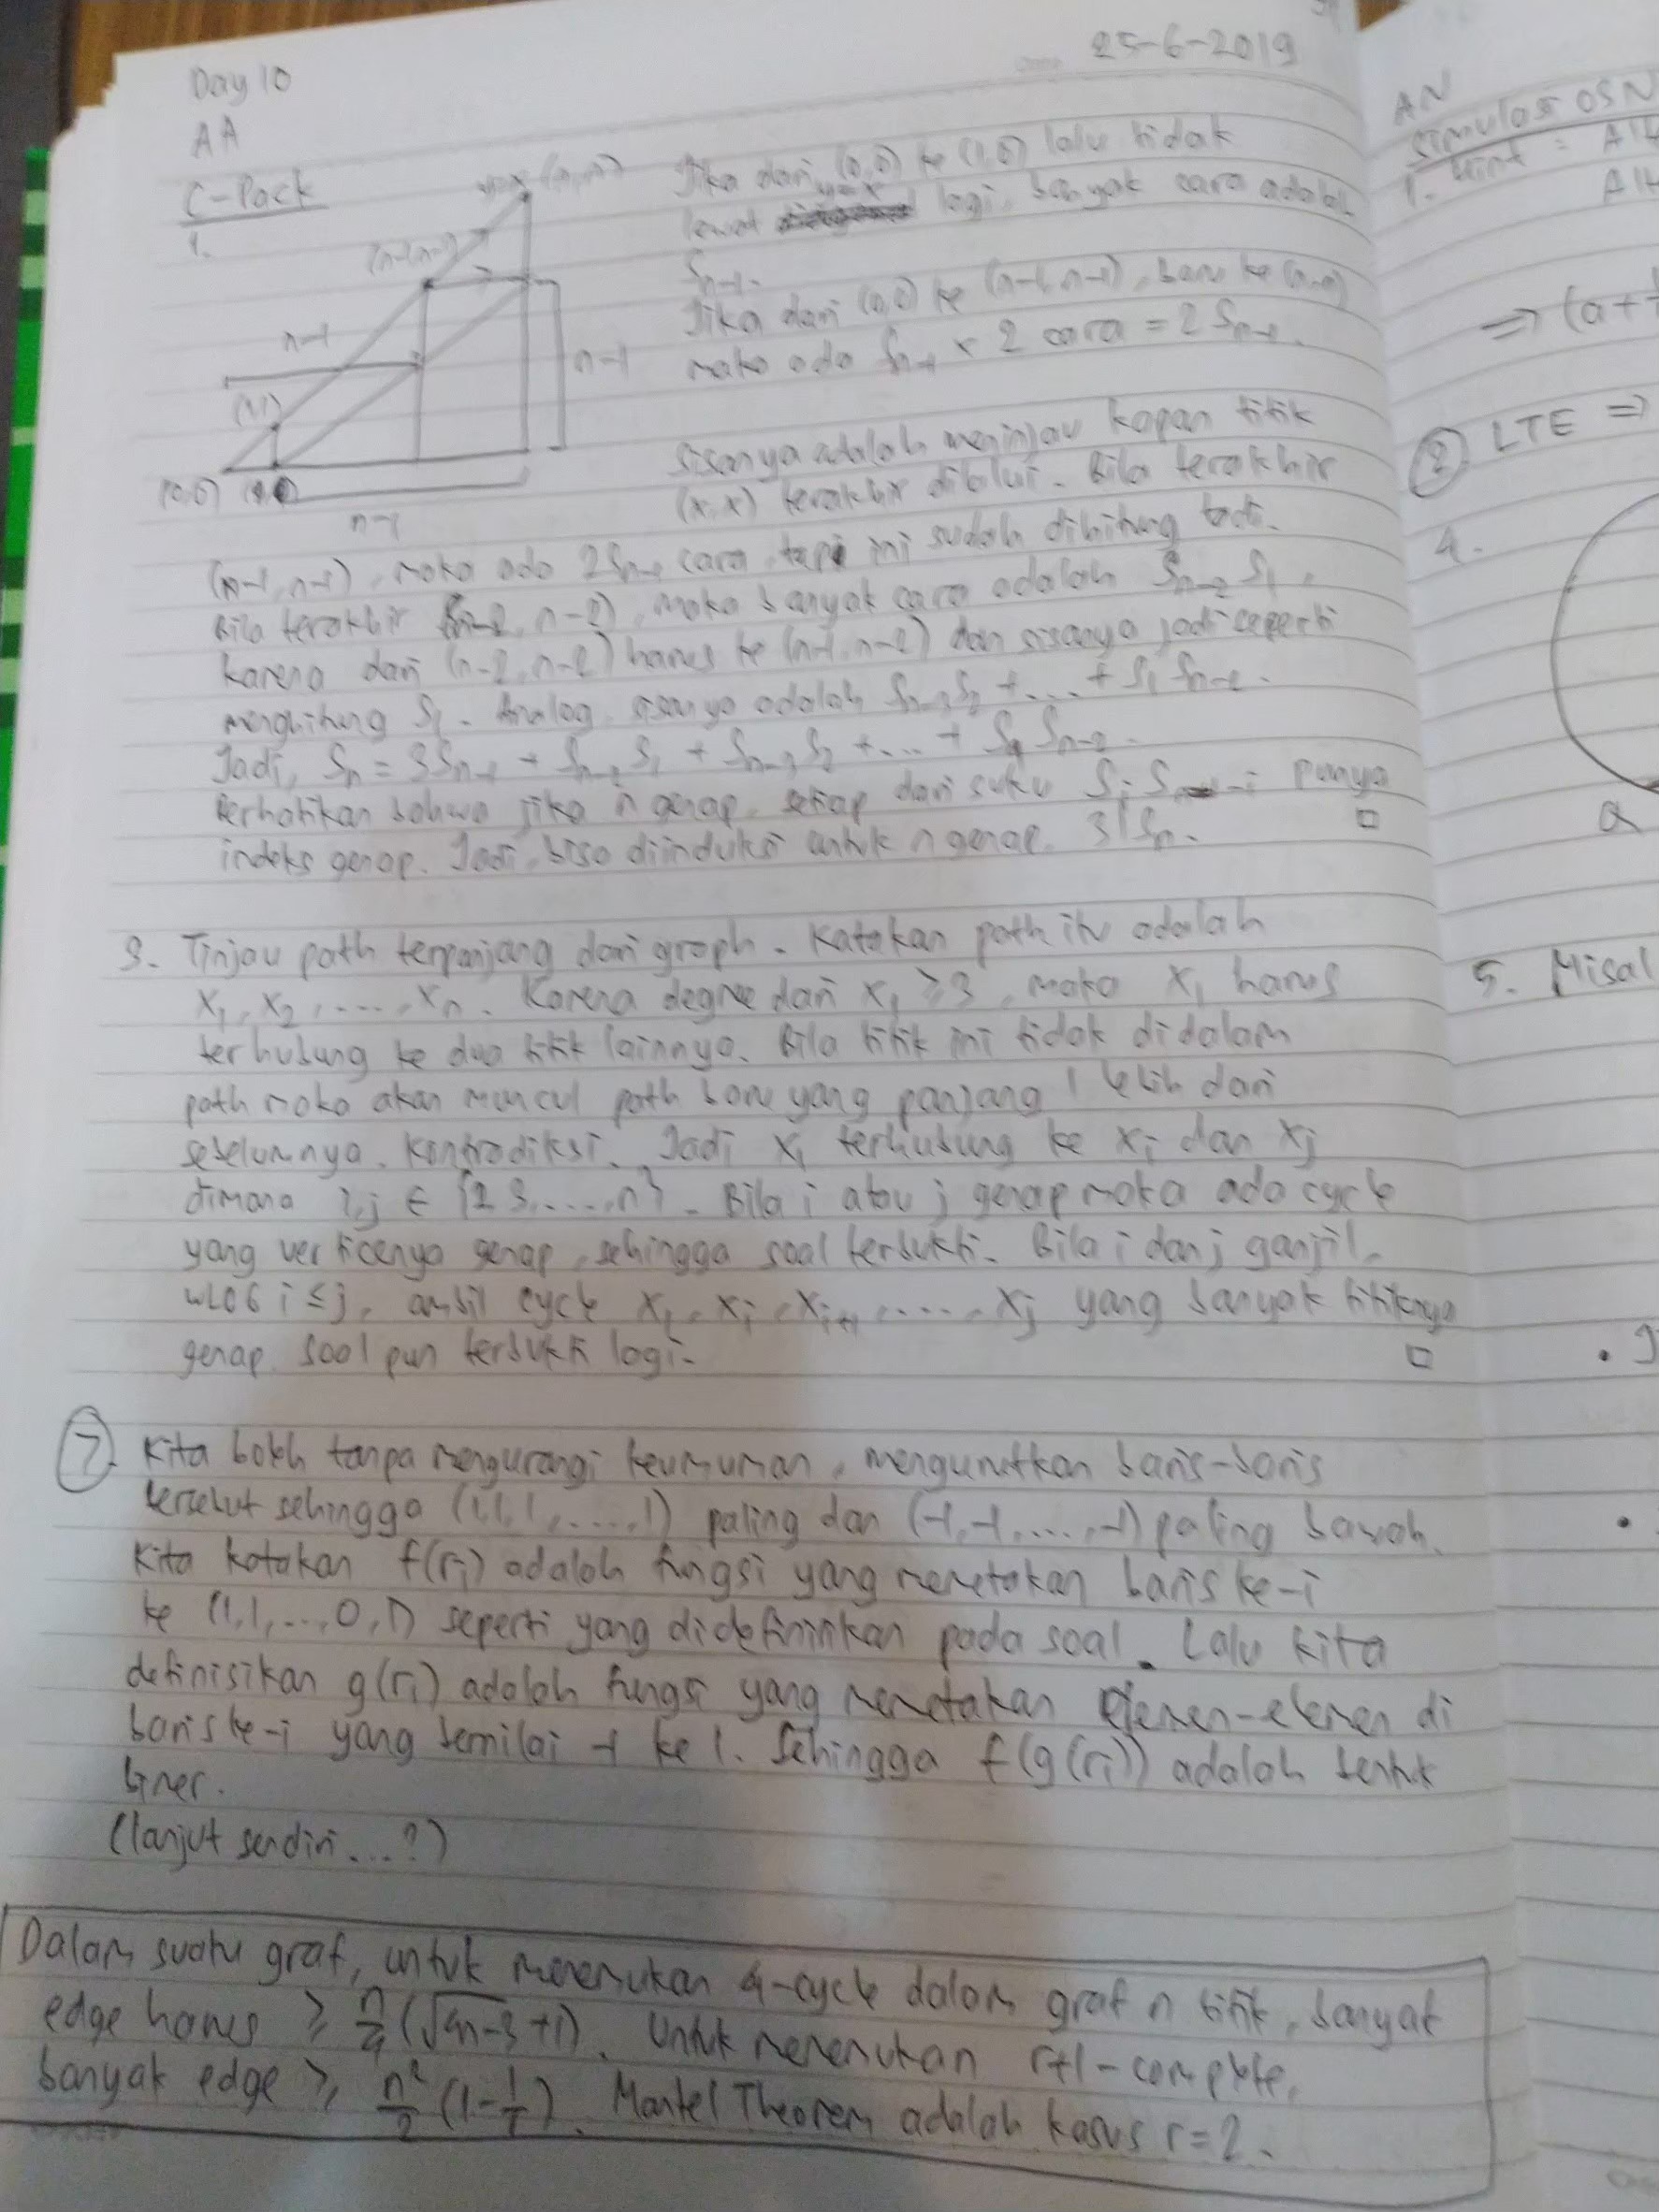 25-6-2019
Day 10
AA
C-Pack
1.
y=x (n,n)
(n-1,n-1)
n-1
n-1
(1,1)
(0,0) (1,0)
n-1
Jika dari (0,0) ke (1,0) lalu tidak
lewat y=x lagi, banyak cara adalah
Sn-1.
Jika dari (0,0) ke (n-1,n-1), baru ke (n,n)
maka ada Sn-1 × 2 cara = 2 Sn-1.
Sisanya adalah meninjau kapan titik
(x,x) terakhir dilalui. Bila terakhir
(n-1,n-1), maka ada 2Sn-1 cara, tapi ini sudah dihitung tadi.
Bila terakhir (n-2, n-2), maka banyak cara adalah Sn-2 S1,
karena dari (n-2,n-2) harus ke (n-1,n-2) dan sisanya jadi seperti
menghitung S1. Analog, sisanya adalah Sn-3 S2 + .... + S1 Sn-2.
Jadi, Sn = 3Sn-1 + Sn-2 S1 + Sn-3 S2 + .... + S1 Sn-2.
Perhatikan bahwa jika n genap, setiap dari suku punya
indeks genap. Jadi, bisa diinduksi untuk n genap, 3|Sn. □
3. Tinjau path terpanjang dari graph. Katakan path itu adalah
x1, x2, ...., xn. Karena degree dari x1 ≥ 3, maka x1 harus
terhubung ke dua titik lainnya. Bila titik ini tidak didalam
path maka akan muncul path baru yang panjang 1 lebih dari
sebelumnya. Kontradiksi. Jadi x1 terhubung ke xi dan xj
dimana i,j ∈ {2,3,....,n}. Bila i atau j genap maka ada cycle
yang verticenya genap, sehingga soal terbukti. Bila i dan j ganjil,
WLOG i ≤ j, ambil cycle x1, xi, xi+1, ...., xj yang banyak titiknya
genap. Soal pun terbukti lagi. □
7. Kita boleh tanpa mengurangi keumuman, mengurutkan baris-baris
tersebut sehingga (1,1,1,....,1) paling dan (-1,-1,....,-1) paling bawah.
Kita katakan f(ri) adalah fungsi yang memetakan baris ke-i
ke (1,1,...,0,1) seperti yang didefinisikan pada soal. Lalu kita
definisikan g(ri) adalah fungsi yang memetakan elemen-elemen di
baris ke-i yang bernilai -1 ke 1. Sehingga f(g(ri)) adalah bentuk
biner.
(lanjut sendiri...?)
Dalam suatu graf, untuk menemukan 4-cycle dalam graf n titik, banyak
edge harus ≥ n/4 (√4n-3 +1). Untuk menemukan r+1-complete,
banyak edge ≥ n²/2 (1-1/r). Mantel Theorem adalah kasus r=2.
AN
Simulasi OSN
1. Hint =
⇒ (a+
2 LTE ⇒
4.
a
5. Misal